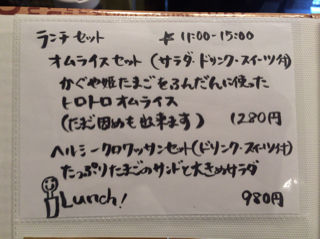 ランチセット 11:00-15:00
オムライスセット(サラダ・ドリンク・スイーツ付)
かぐや姫たまごをふんだんに使った
トロトロオムライス
(たまご固めも出来ます) 1280円
ヘルシークロワッサンセット(ドリンク・スイーツ付)
たっぷりたまごのサンドと大きめサラダ
Lunch! 980円